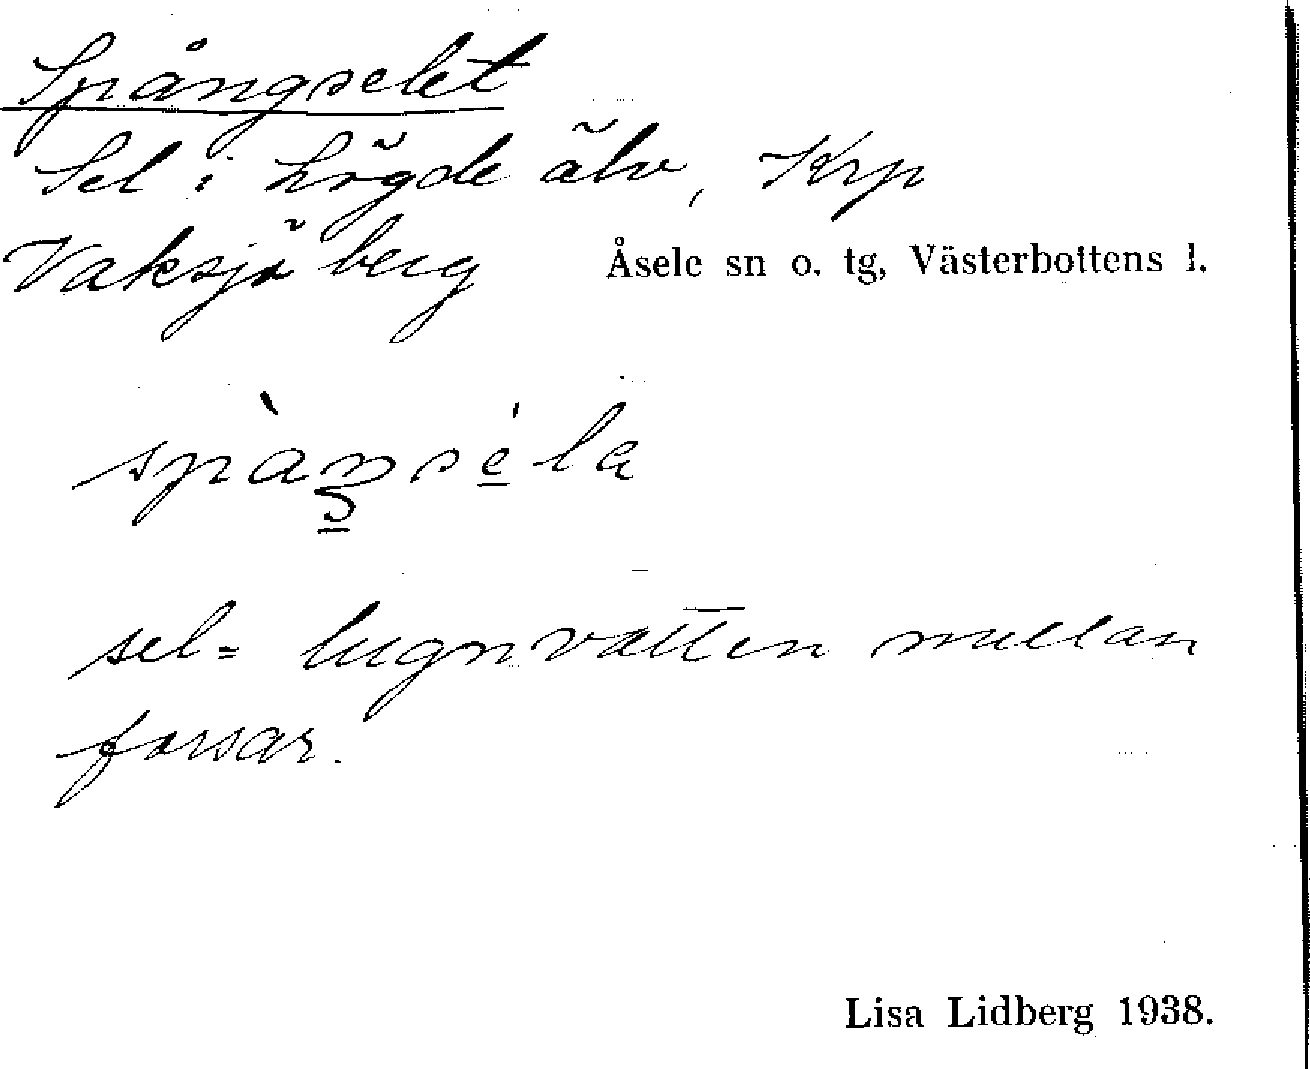 Spångselet
Sel i Lögde älv, Krp
Vaksjöberg Åsele sn o. tg, Västerbottens l.
sel = lugnvatten mellan
forsar.
Lisa Lidberg 1938.